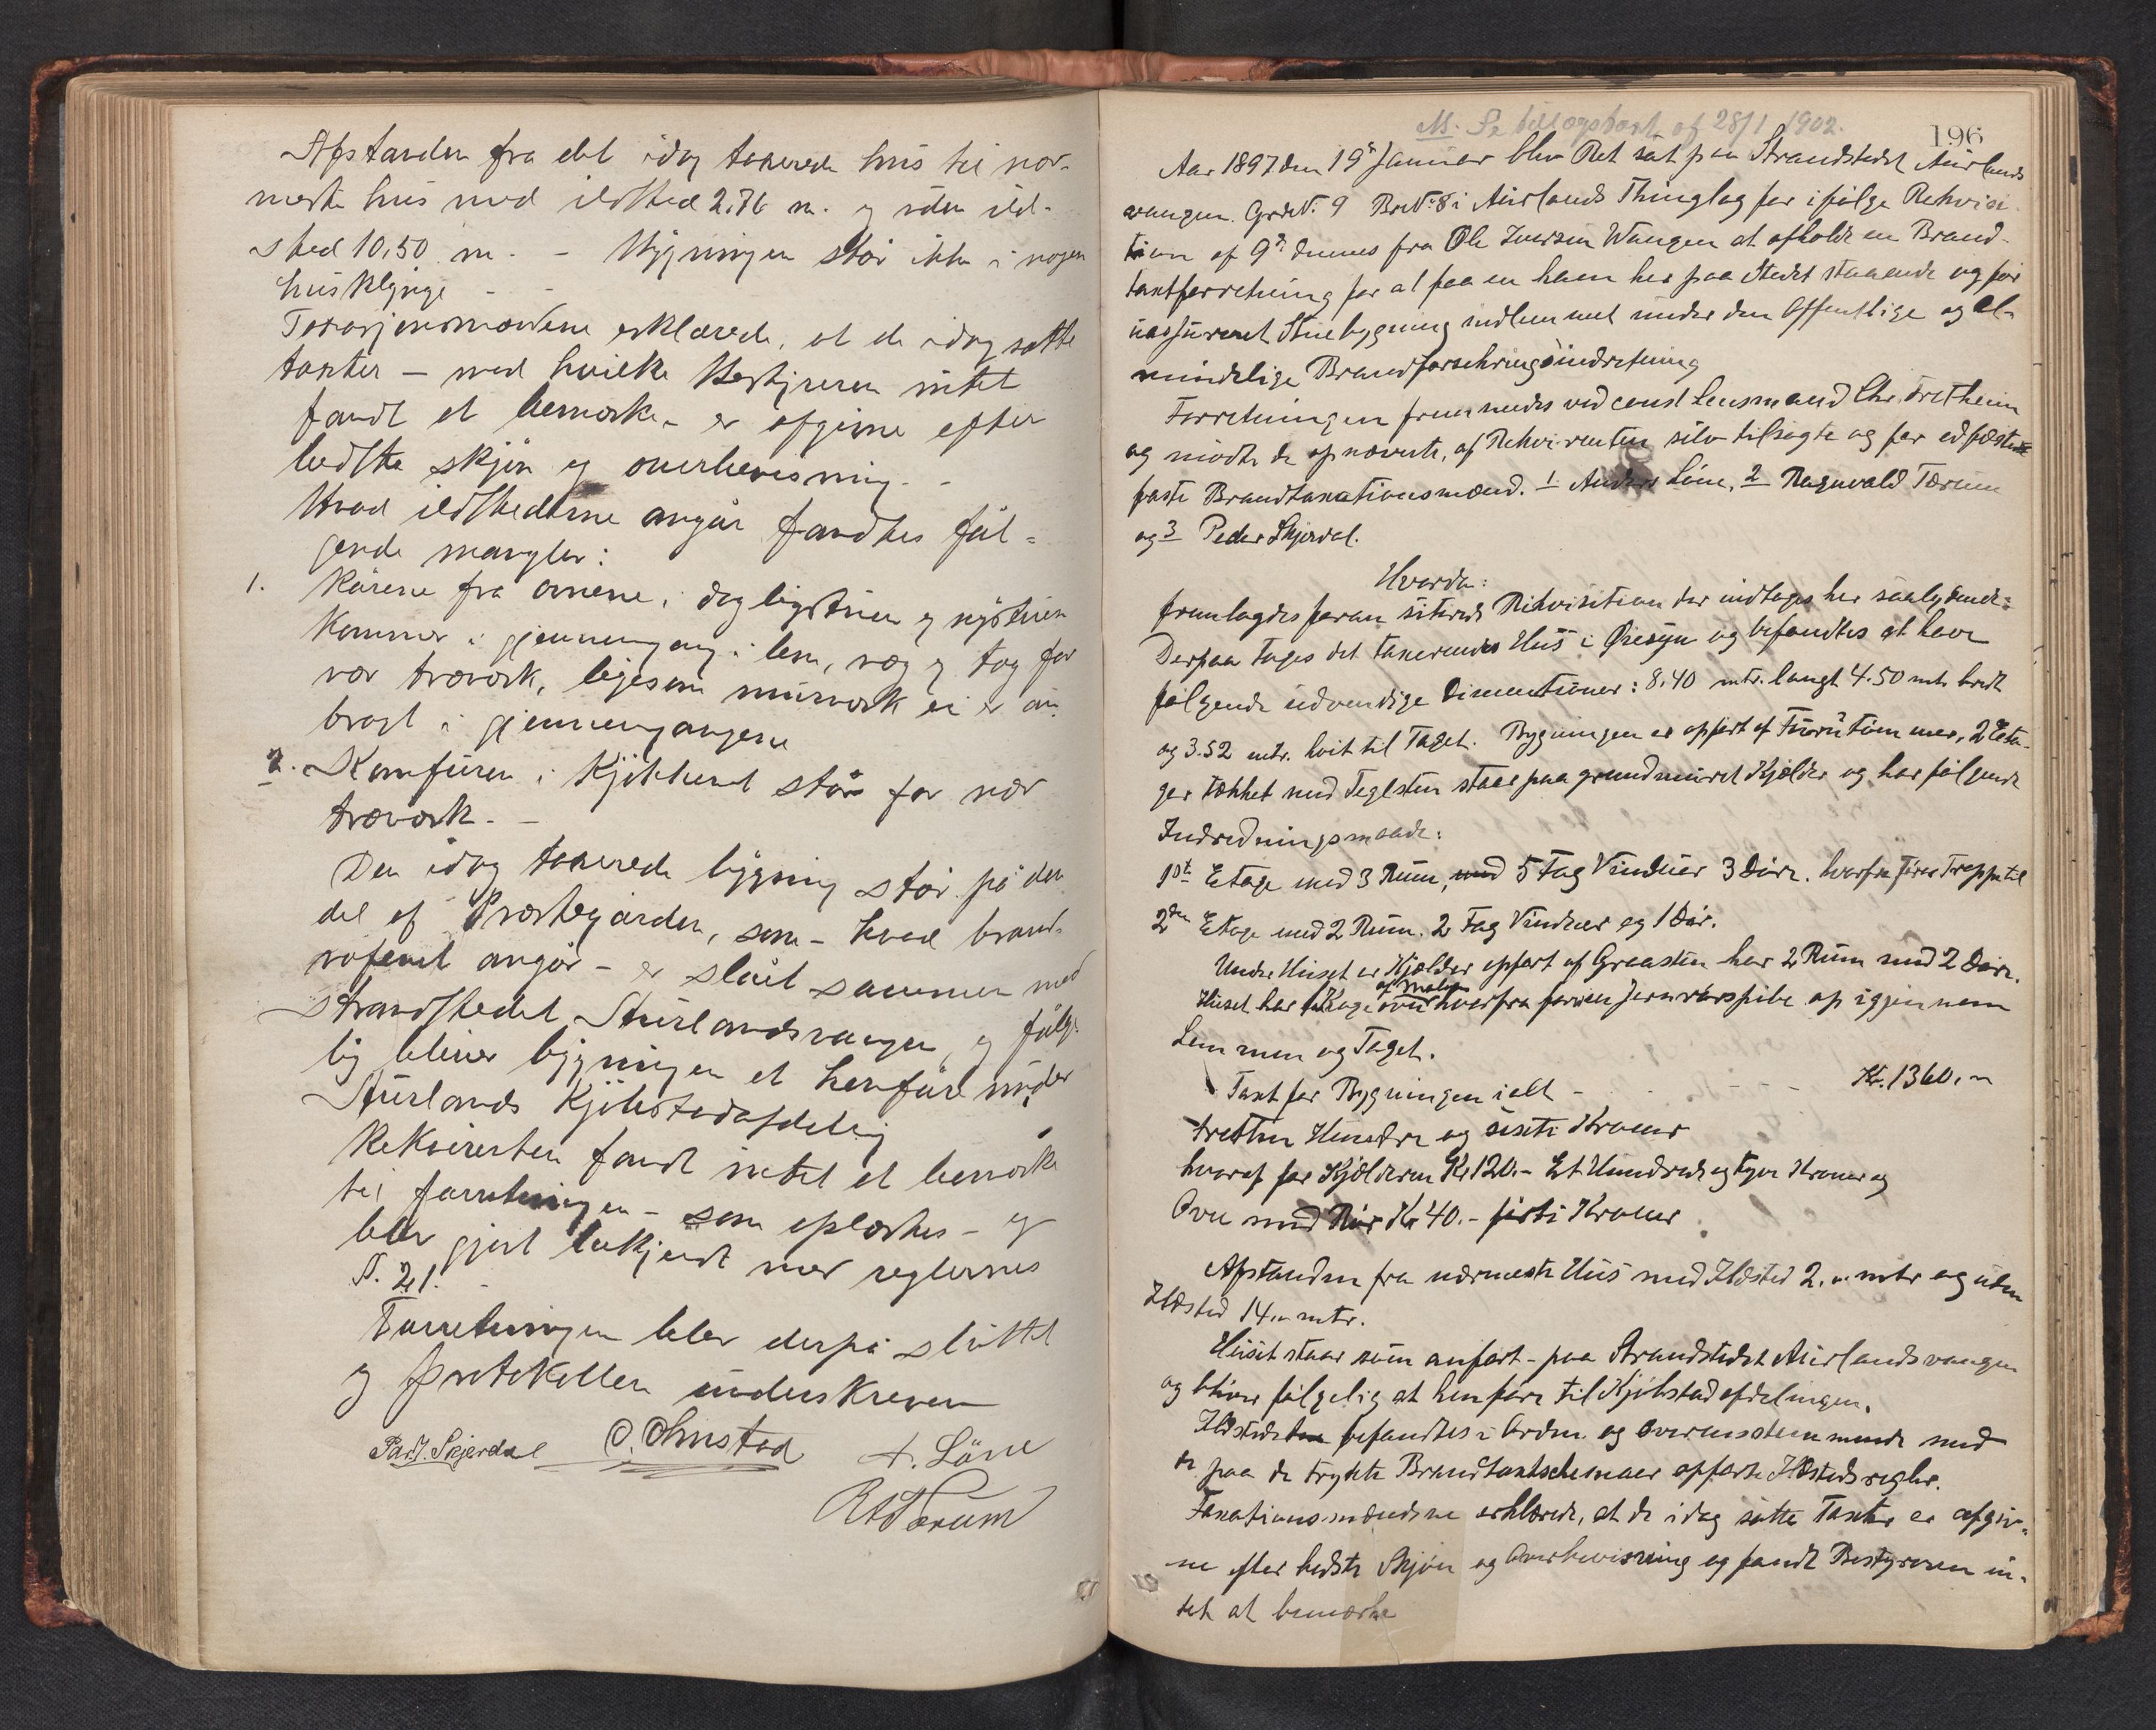 Afstanden fra det idag taxerede hus til nær-
meste hus med ildsted 2.76 m. og uden ild-
sted 10,50 m. - Bygningen står ikke i nogen
husklynge - -
Taxasjonsmændene erklærede, at de idag satte
taxter – med hvilke Bestyreren intet
fandt at bemærke - er afgivne efter
bedste skjøn og overbevisning. -
Hvad ildstederne angår fandtes føl=
gende mangler:
1. Rørene fra ovnene i dagligstuen og nystuen
kommer i gjennemgang i lem, væg og tag for
nær træværk, ligesom murværk ei er an-
bragt i gjennemgangene
2. Komfuren i Kjøkkenet står for nær
træværk. -
Den idag taxerede bygning står på den
del af Præstegården, som – hvad brand-
væsenet angår – er slået sammen med
strandstedet Aurlandsvangen, og følge-
lig bliver bygningen at henføre under
Aurlands Kjøbstadafdeling
Rekvirenten fandt intet at bemærke
til forretningen – som oplæstes – og
blev gjort bekjendt med reglernes
§. 21. -
Forretningen blev derpå sluttet
og protokollen underskreven
Pedr. Skjerdal O. Ohnstad A. Löne
R Tærum
M. Se tillægstaxt af 28/1 1902.
196
Aar 1897 den 19de Januar blev Ret sat paa Strandstedet Aurlands
vangen Grds.N. 9 Br.N. 8 i Aurlands Thinglag for ifølge Rekvisi
tion af 9de dennes fra Ole Iversen Wangen at afholde en Brand-
taxtforretning for at faa en ham her paa Stedet staaende og før
uassureret Stuebygning indlemmet under den Offentlige og al-
mindelige Brandforsikringsindretning
Forretningen fremmedes ved const Lensmand Chr. Fretheim
og mødte de opnævnte, af Rekvirenten selv tilsagte og før edfæstede
faste Brandtaxationsmænd. 1 Anders Löne, 2 Ragnvald Tærum
og 3 Peder Skjerdal.
Hvorda:
fremlagdes foran siterede Rekvisition der indtages her saalydende:
Derpaa toges det taxerendes Hus i Øiesyn og befandtes at have
følgende udvendige Dimentioner: 8.40 mtr. langt 4.50 mtr bredt
og 3.52 mtr. høit til Taget. Bygningen er opført af Furutømmer, 2 Eta-
ger tækket med Teglsten staar paa grundmuret Kjælder og har følgende
Indredningsmaade:
1ste Etage med 3 Rum, med 5 Fag Vinduer 3 Døre. hvorfra fører Trappe til
2den Etage med 2 Rum. 2 Fag Vinduer og 1 Dør.
Under Huset er Kjælder opført af Graasten har 2 Rum med 2 Døre.
af Malm
Huset har 1 Kogeovn hvorfra fører Jernrørspibe op igjennem
Lemmen og Taget.
Taxt for Bygningen ialt - - - - Kr. 1360.„
tretten Hundre og seksti Kroner
hvoraf for Kjælderen Kr 120.– Et Hundrede og tyve Kroner og
Ovn med Rør Kr 40.– førti Kroner
Afstanden fra nærmeste Hus med Ildsted 2.„ mtr og uden
Ildsted 14.„ mtr.
Huset staar som anført – paa Strandstedet Aurlandsvangen
og bliver følgelig at henføre til Kjøbstadafdelingen.
Ildstedet befandtes i Orden og overensstemmende med
de paa de trykte Brandtaxtschemaer opførte Ildstedsregler.
Taxationsmændene erklærede, at de idag satte Taxter er afgiv-
ne efter bedste Skjøn og Overbevisning og fandt Bestyreren in-
tet at bemærke